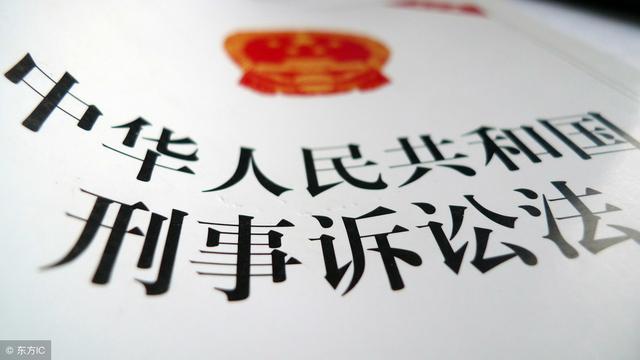 中华人民共和国
刑事诉讼法
© 东方IC